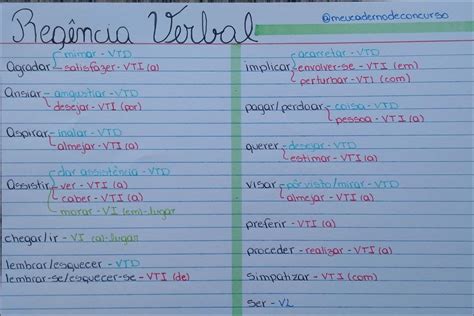 Regência Verbal
@meucadernodeconcurso
mimar - VTD
Agradar
satisfazer - VTI (a)
Ansiar - angustiar - VTD
desejar - VTI (por)
Aspirar - inalar - VTD
almejar - VTI (a)
dar assistência - VTD
Assistir - ver - VTI (a)
caber - VTI (a)
morar - VI (em)-lugar
chegar/ir - VI (a)-lugar
lembrar/esquecer - VTD
lembrar-se/esquecer-se - VTI (de)
acarretar - VTD
implicar envolver-se - VTI (em)
perturbar - VTI (com)
pagar/perdoar - coisa - VTD
pessoa - VTI (a)
querer - desejar - VTD
estimar - VTI (a)
visar - pôr visto/mirar - VTD
almejar - VTI (a)
preferir - VTI (a)
proceder - realizar - VTI (a)
simpatizar - VTI (com)
ser - VL